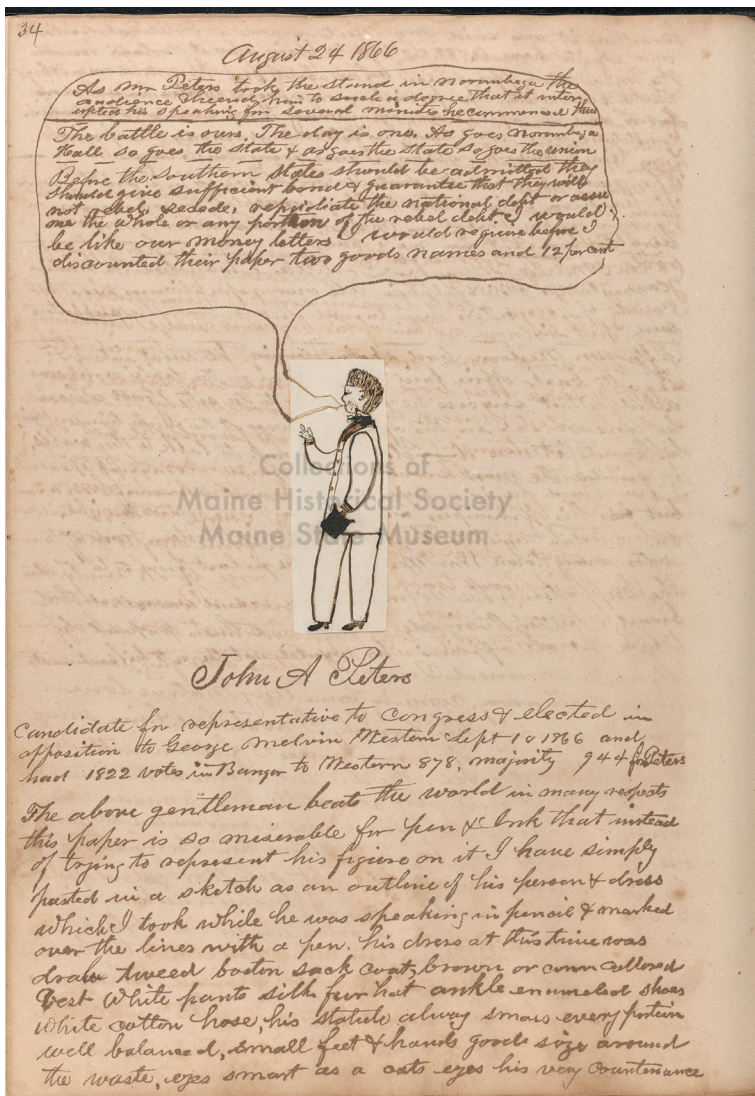 34
August 24 1866
As Mr Peters took the stand in Norumbega the
audience cheered him to such a degree that it inter
upted his speaking for several minits he commenced thus
The battle is ours, The day is one, As goes Norumbega
Hall so goes the State & as goes the State so goes the union
Before the Southern States should be admitted they
should give sufficient bond & guarantee that they will
not rebel, secede, repudiate the national debt or assu
me the whole or any portion of the rebel debt I would
be like our money letters I would require before I
discounted their paper two goods names and 12 percent
Collections of
Maine Historical Society
Maine State Museum
John A Peters
Candidate for representative to Congress & elected in
opposition to George Melvin Weston Sept 10 1866 and
had 1822 votes in Bangor to Western 878, majority 944 for Peters
The above gentleman beats the world in many respects
this paper is so miserable for pen & Ink that instead
of trying to represent his figure on it I have simply
pasted in a sketch as an outline of his person & dress
which I took while he was speaking in pencil & marked
over the lines with a pen. his dress at this time was
drab tweed boston sack coat, brown or corn collored
Vest White pants silk fur hat ankle enameled shoes
White cotton hose, his statute alway smars every portion
well balanced, small feet & hands goods size around
the waste, eyes smart as a cats eyes his very Countenance